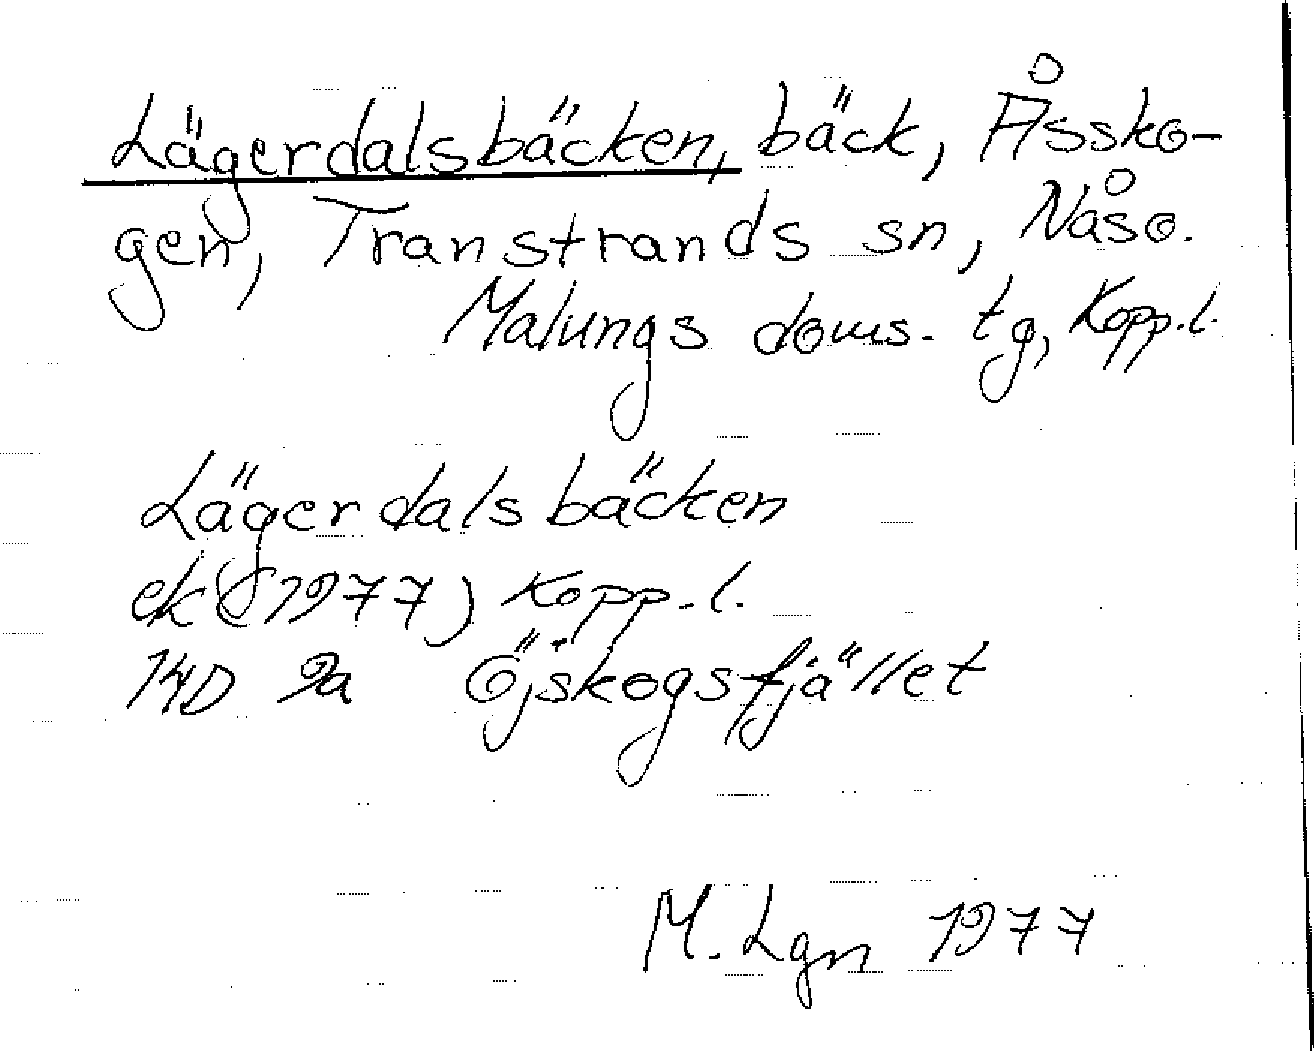 Lägerdalsbäcken, bäck, Åssko-
gen, Transtrands sn, Nåso.
Malungs doms. tg, Kopp.l.
Lägerdalsbäcken
ek (1977) Kopp.l.
14D 9a Öjskogsfjället
M. Lgn 1977